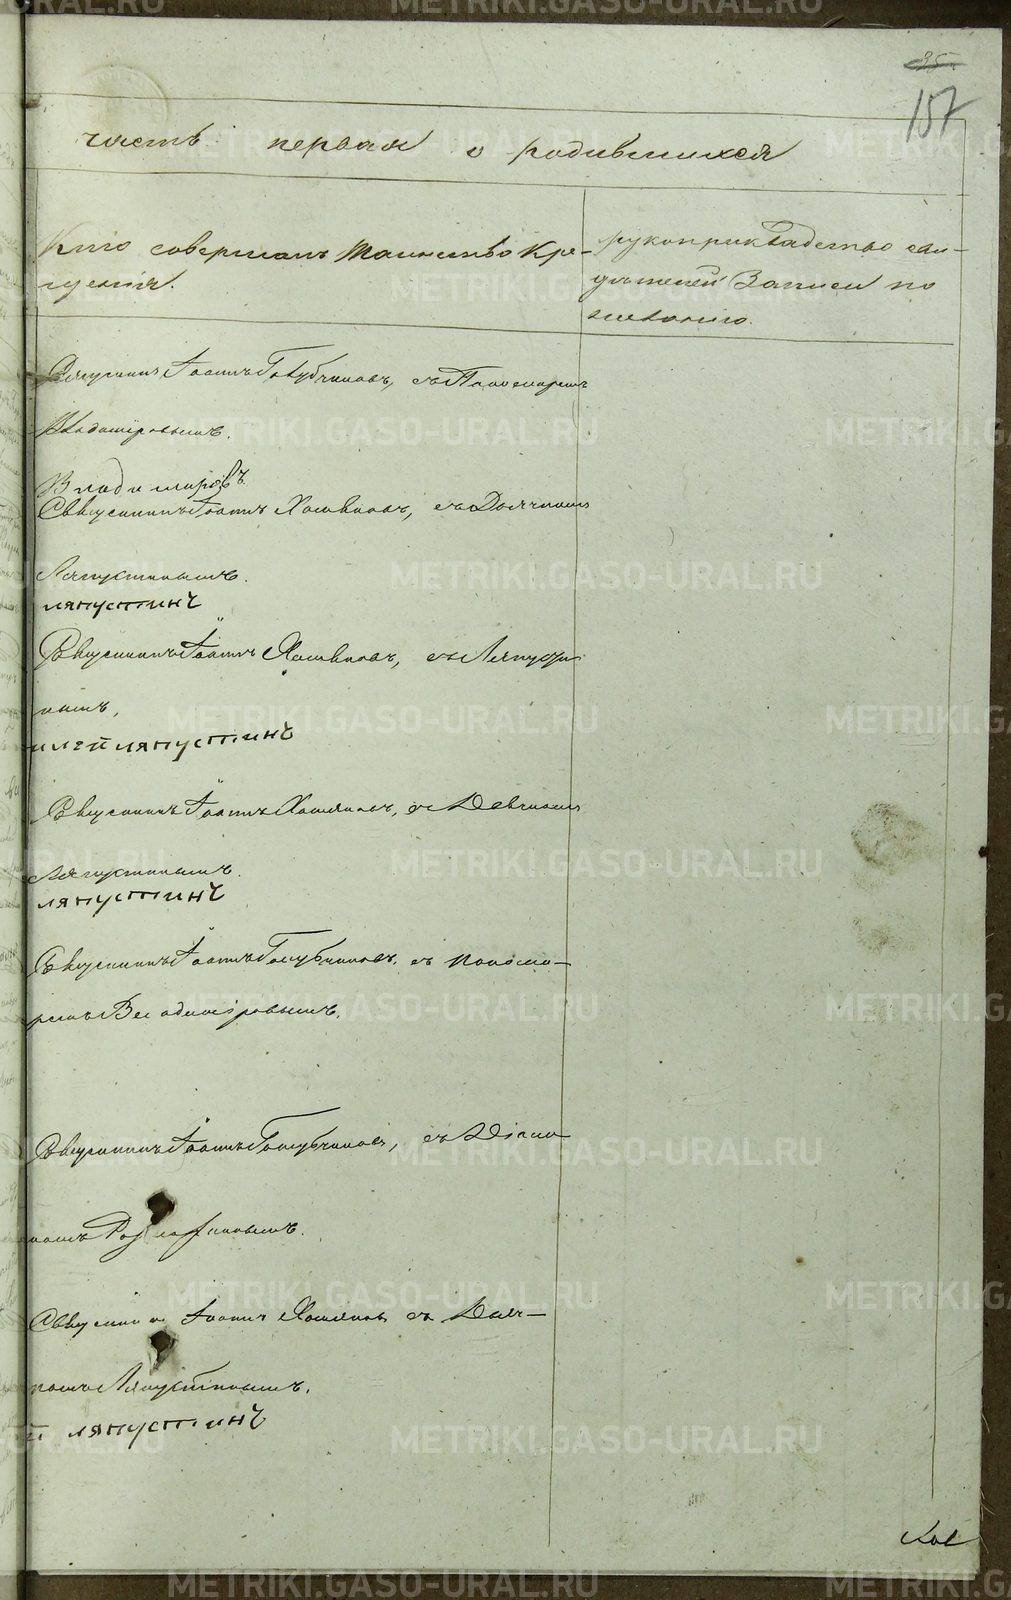 157
часть первая о родившихся
Кто совершалъ таинство Кре-
щенія.
рукоприкладство сви-
дѣтелей записи по
желанію.
Священникъ Іоаннъ Голубчиковъ, съ Пономаремъ
Владиміровымъ.
Владимировъ
Священникъ Іоаннъ Хомяковъ, съ Дьячкомъ
Ляпустинымъ.
ляпустинъ
Священникъ Іоаннъ Хомяковъ, съ Ляпусти
нымъ,
ляпустинъ
Священникъ Іоаннъ Хомяковъ, съ Дьячкомъ
Ляпустинымъ.
ляпустинъ
Священникъ Іоаннъ Голубчиковъ, съ Понома-
ремъ Владиміровымъ.
Священникъ Іоаннъ Голубчиковъ, съ Діако
номъ
Священникъ Іоаннъ Хомяковъ съ Дьяч-
комъ Ляпустинымъ.
й ляпустинъ
METRIKI.GASO-URAL.RU